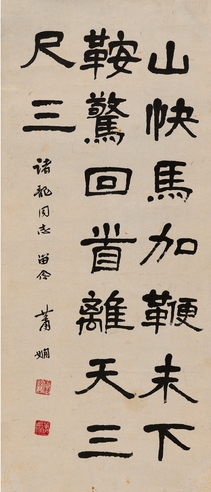 山快馬加鞭未下
鞍驚回首離天三
尺三
諸龍同志留念 蕭嫻